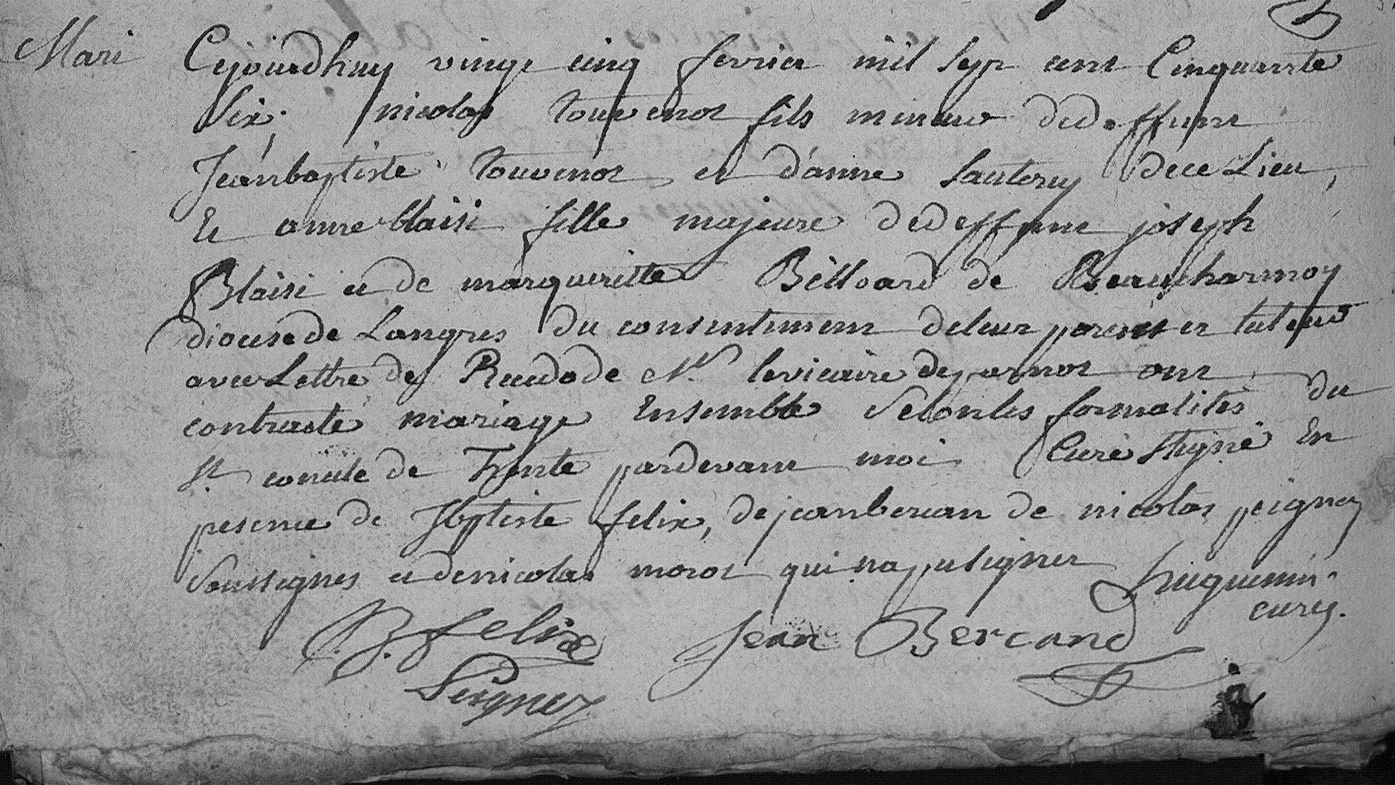 Mari
Cejourdhuy vingt cinq fevrier mil sept cent Cinquante
Six, nicolas touvenot fils mineur dedeffunt
Jeanbaptiste touvenot et d'anne Sauterey dece Lieu,
Et anne blaisi fille majeure dedeffunt joseph
Blaisi et de margueritte Billoard de Beaucharmoy
diocese de Langres du consentement deleur parents et tuteur
avec Lettre de Recedo de Mr. levicaire de parnot ont
contracte mariage Ensemble Selonles formalites du
st. concile de Trente pardevant moi Curé sstigné En
presence de Jbptiste felix, dejeanbercan de nicolas peignez
Soussignes et denicolas morot qui napu signer huguenin
curez.
J. B. felix Jean Bercand
Peignez